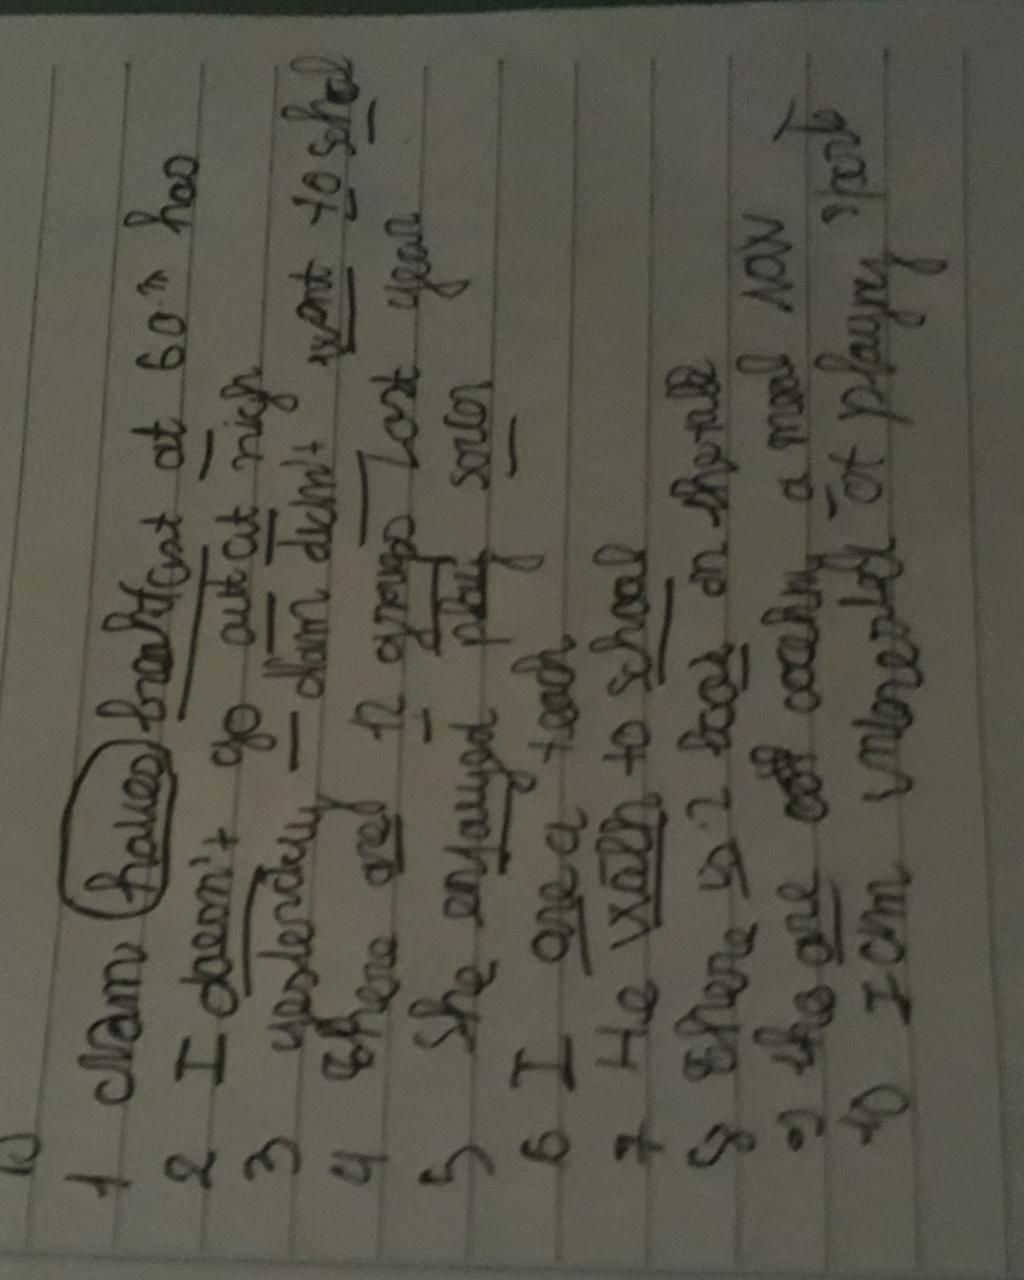 1 Nam haves breakfast at 60" hao
2 I daesn't go out at nigh
3 yesterday Nam didn't want to schol
4 There are 12 groups Last year
5 She enjayed play socer
6 I are a teach
7 He walh to school
8 There is 2 book on the
9) the are a meal now
10 I am interested at playing sport